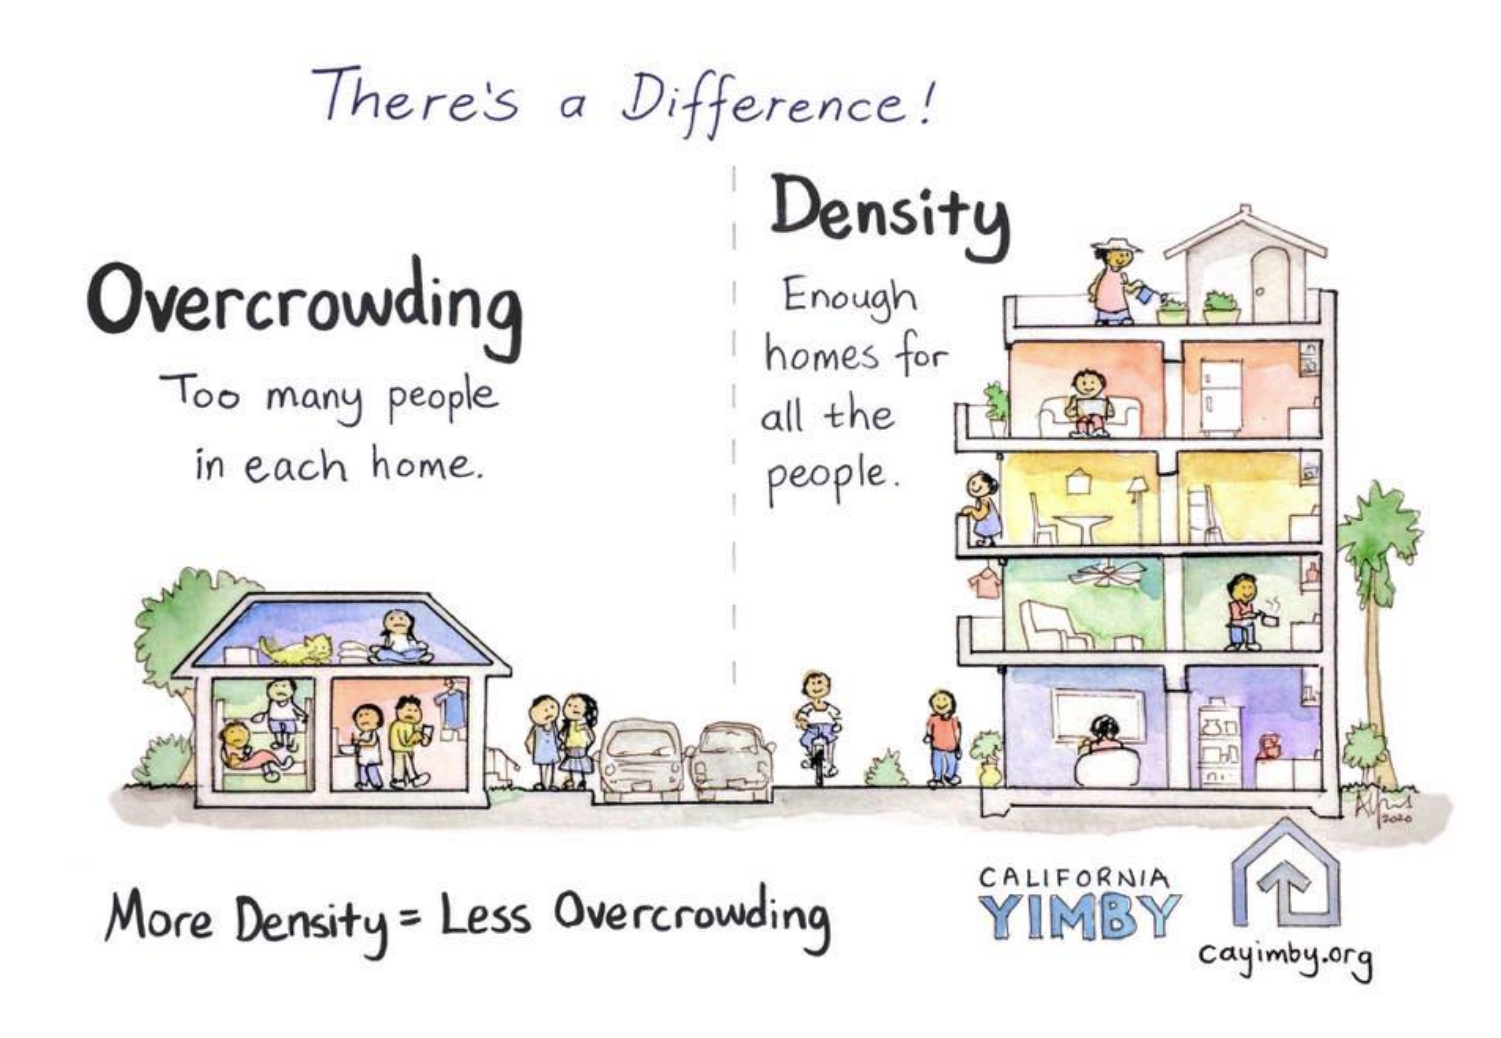 There's a Difference!
Overcrowding
Too many people
in each home.
Density
Enough
homes for
all the
people.
More Density = Less Overcrowding
CALIFORNIA
YIMBY
cayimby.org
2020